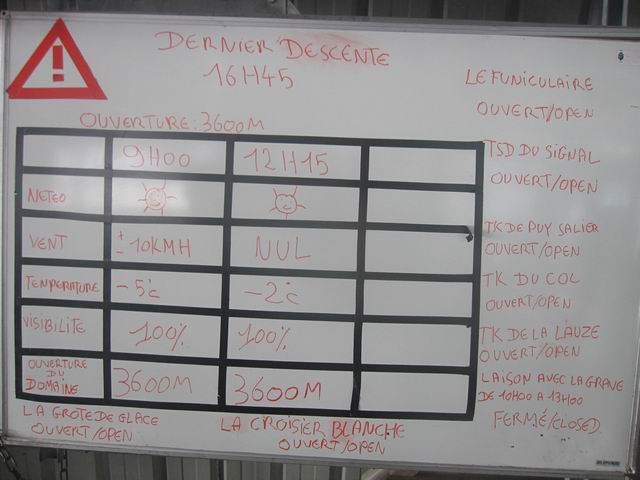 DERNIER DESCENTE
16H45
LE FUNICULAIRE
OUVERT/OPEN
OUVERTURE: 3600M
9H00 12H15
METEO
VENT ± 10KMH NUL
TEMPERATURE -5°c -2°c
VISIBILITE 100% 100%
OUVERTURE DU DOMAINE 3600M 3600M
TSD DU SIGNAL
OUVERT/OPEN
TK DE PUY SALIER
OUVERT/OPEN
TK DU COL
OUVERT/OPEN
TK DE LA LAUZE
OUVERT/OPEN
LAISON AVEC LA GRAVE
DE 10H00 A 13H00
FERMÉ/CLOSED
LA GROTE DE GLACE
OUVERT/OPEN
LA CROISIER BLANCHE
OUVERT/OPEN